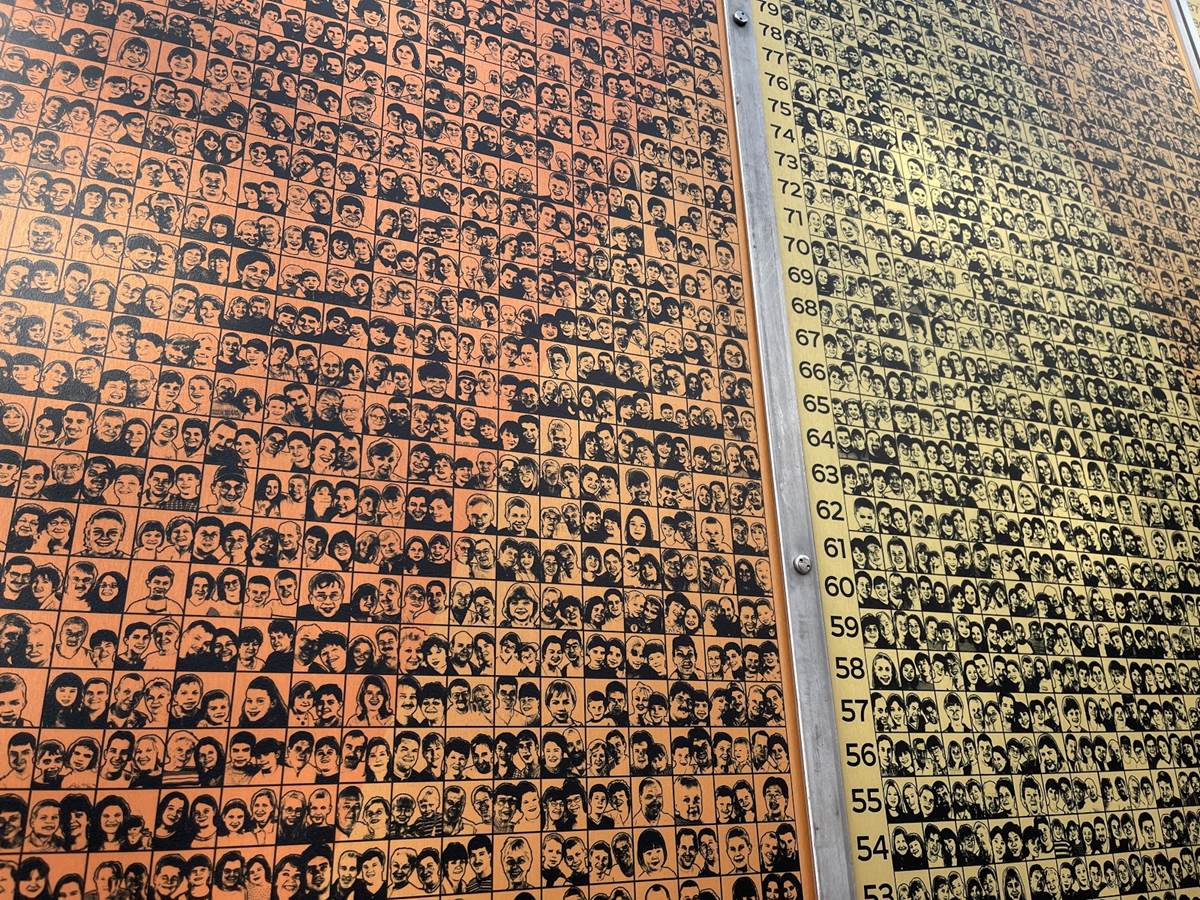 79
78
77
76
75
74
73
72
71
70
69
68
67
66
65
64
63
62
61
60
59
58
57
56
55
54
53